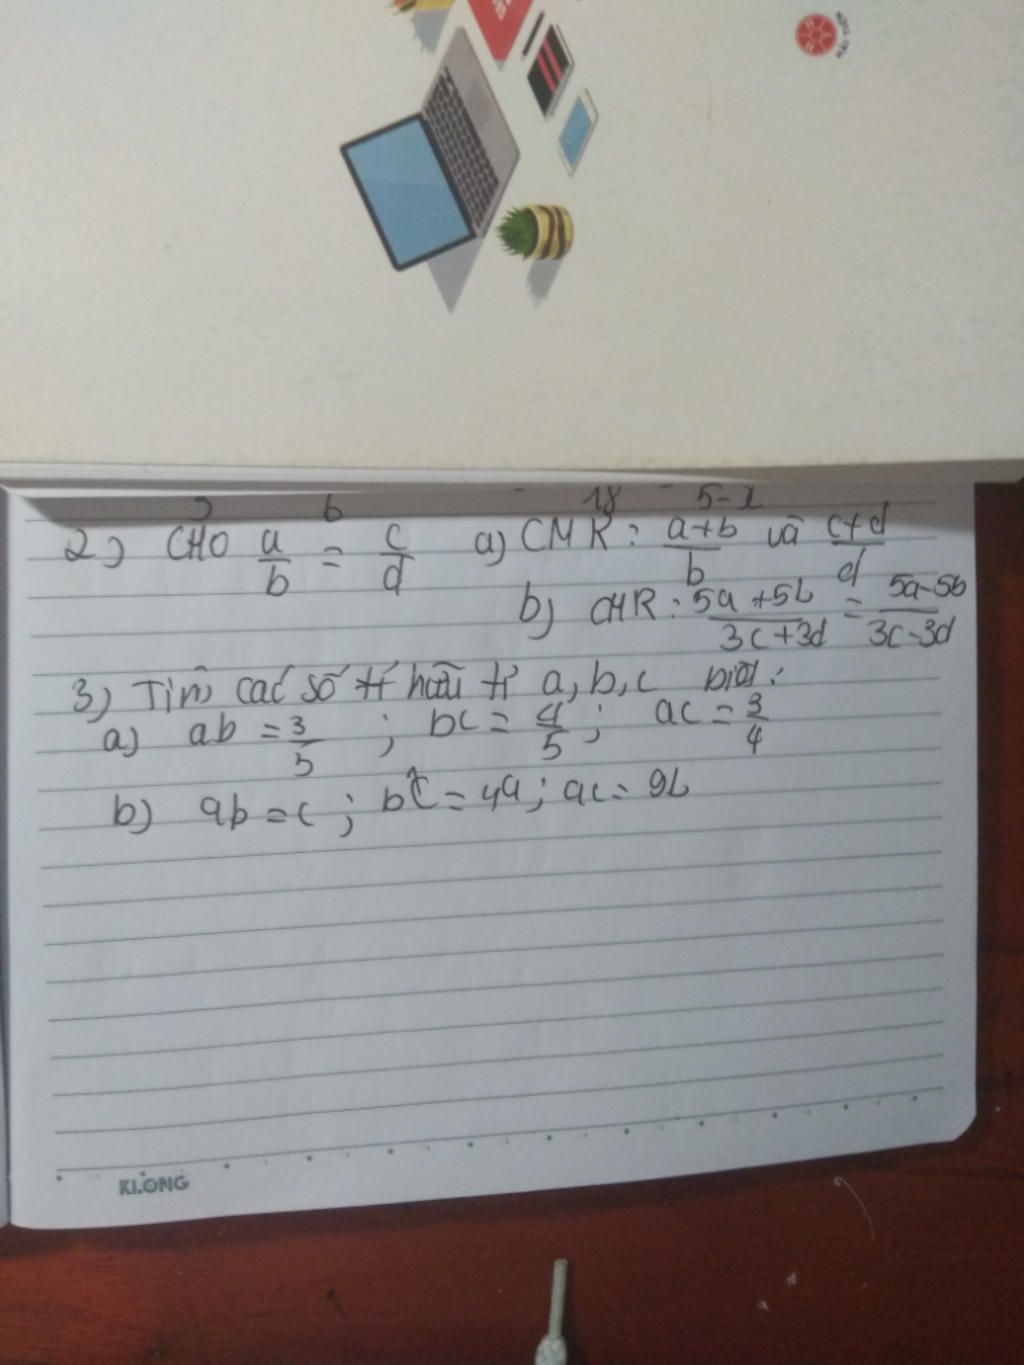 3 6 18 5-1
2) CHO a/b = c/d a) CMR: a+b/b và c+d/d
b) CMR: 5a+5b/3c+3d = 5a-5b/3c-3d
3) Tìm các số tỉ hữu tỉ a,b,c biết:
a) ab = 3/5 ; bc = 4/5 ; ac = 3/4
b) ab = c ; bc = 4a ; ac = 9b
KLONG